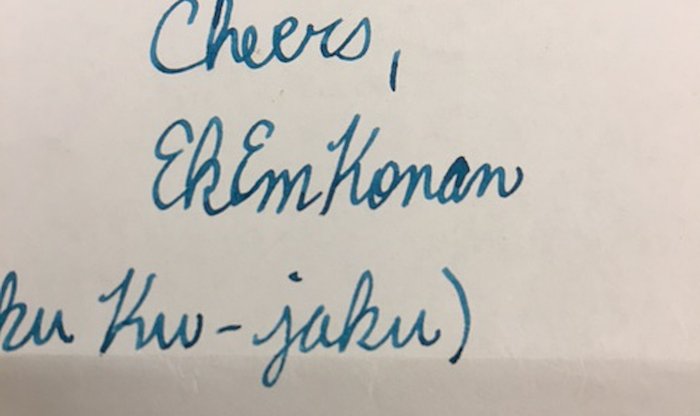 Cheers,
EkEmKonan
ku Ku-jaku)